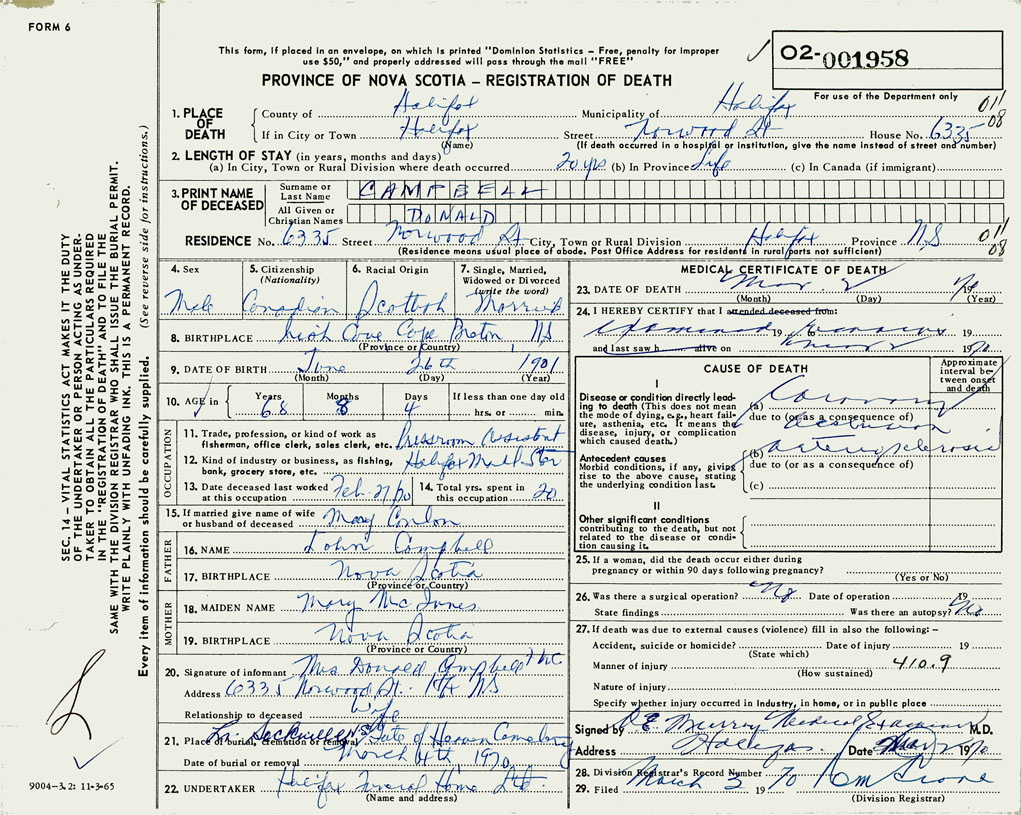 FORM 6
This form, if placed in an envelope, on which is printed "Dominion Statistics – Free, penalty for improper
use $50," and properly addressed will pass through the mail "FREE"
PROVINCE OF NOVA SCOTIA – REGISTRATION OF DEATH
O2-001958
For use of the Department only
011
08
1. PLACE OF DEATH
County of Halifax Municipality of Halifax
If in City or Town Halifax Street Norwood St House No. 6335
(Name) (If death occurred in a hospital or institution, give the name instead of street and number)
2. LENGTH OF STAY (in years, months and days)
(a) In City, Town or Rural Division where death occurred 20 yrs (b) In Province Life (c) In Canada (if immigrant)
3. PRINT NAME OF DECEASED
Surname or Last Name CAMPBELL
All Given or Christian Names DONALD
RESIDENCE No. 6335 Street Norwood St City, Town or Rural Division Halifax Province N.S
(Residence means usual place of abode. Post Office Address for residents in rural parts not sufficient)
011
08
4. Sex
Male
5. Citizenship (Nationality)
Canadian
6. Racial Origin
Scottish
7. Single, Married, Widowed or Divorced (write the word)
Married
8. BIRTHPLACE Cove Cape Breton, NS
(Province or Country)
9. DATE OF BIRTH June 26th 1901
(Month) (Day) (Year)
10. AGE in Years Months Days If less than one day old
68 8 4 hrs. or min.
OCCUPATION
11. Trade, profession, or kind of work as
fisherman, office clerk, sales clerk, etc. Pressroom Assistant
12. Kind of industry or business, as fishing,
bank, grocery store, etc. Halifax Mail-Star
13. Date deceased last worked at this occupation Feb. 27/70
14. Total yrs. spent in this occupation 20
15. If married give name of wife or husband of deceased Mary Conlon
FATHER
16. NAME John Campbell
17. BIRTHPLACE Nova Scotia
(Province or Country)
MOTHER
18. MAIDEN NAME Mary McInnes
19. BIRTHPLACE Nova Scotia
(Province or Country)
20. Signature of informant Mrs Donald Campbell
Address 6335 Norwood St. Hfx NS
Relationship to deceased Wife
21. Place of burial, cremation or removal Lr. Sackville N.S. Gate of Heaven Cemetery
Date of burial or removal March 4th 1970
22. UNDERTAKER Halifax Funeral Home Ltd.
(Name and address)
MEDICAL CERTIFICATE OF DEATH
23. DATE OF DEATH Mar. 2 70
(Month) (Day) (Year)
24. I HEREBY CERTIFY that I attended deceased from:
examined 19 remains 19
and last saw h alive on 2 1970
CAUSE OF DEATH
Approximate interval between onset and death
I
Disease or condition directly leading to death (This does not mean the mode of dying, e.g., heart failure, asthenia, etc. It means the disease, injury, or complication which caused death.)
(a) Coronary
due to (or as a consequence of)
Antecedent causes
Morbid conditions, if any, giving rise to the above cause, stating the underlying condition last.
(b) arteriosclerosis
due to (or as a consequence of)
(c)
II
Other significant conditions contributing to the death, but not related to the disease or condition causing it.
25. If a woman, did the death occur either during
pregnancy or within 90 days following pregnancy?
(Yes or No)
26. Was there a surgical operation? No Date of operation 19
State findings Was there an autopsy? No
27. If death was due to external causes (violence) fill in also the following: –
Accident, suicide or homicide? Date of injury 19
(State which)
Manner of injury 410.9
(How sustained)
Nature of injury
Specify whether injury occurred in industry, in home, or in public place
Signed by Murray Medical Examiner M.D.
Address Halifax Date Mar 2 1970
28. Division Registrar's Record Number
29. Filed March 3 1970
(Division Registrar)
SEC. 14 – VITAL STATISTICS ACT MAKES IT THE DUTY
OF THE UNDERTAKER OR PERSON ACTING AS UNDER-
TAKER TO OBTAIN ALL THE PARTICULARS REQUIRED
IN THE "REGISTRATION OF DEATH" AND TO FILE THE
SAME WITH THE DIVISION REGISTRAR WHO SHALL ISSUE THE BURIAL PERMIT.
WRITE PLAINLY WITH UNFADING INK. THIS IS A PERMANENT RECORD.
Every item of information should be carefully supplied. (See reverse side for instructions.)
9004-3.2: 11-3-65